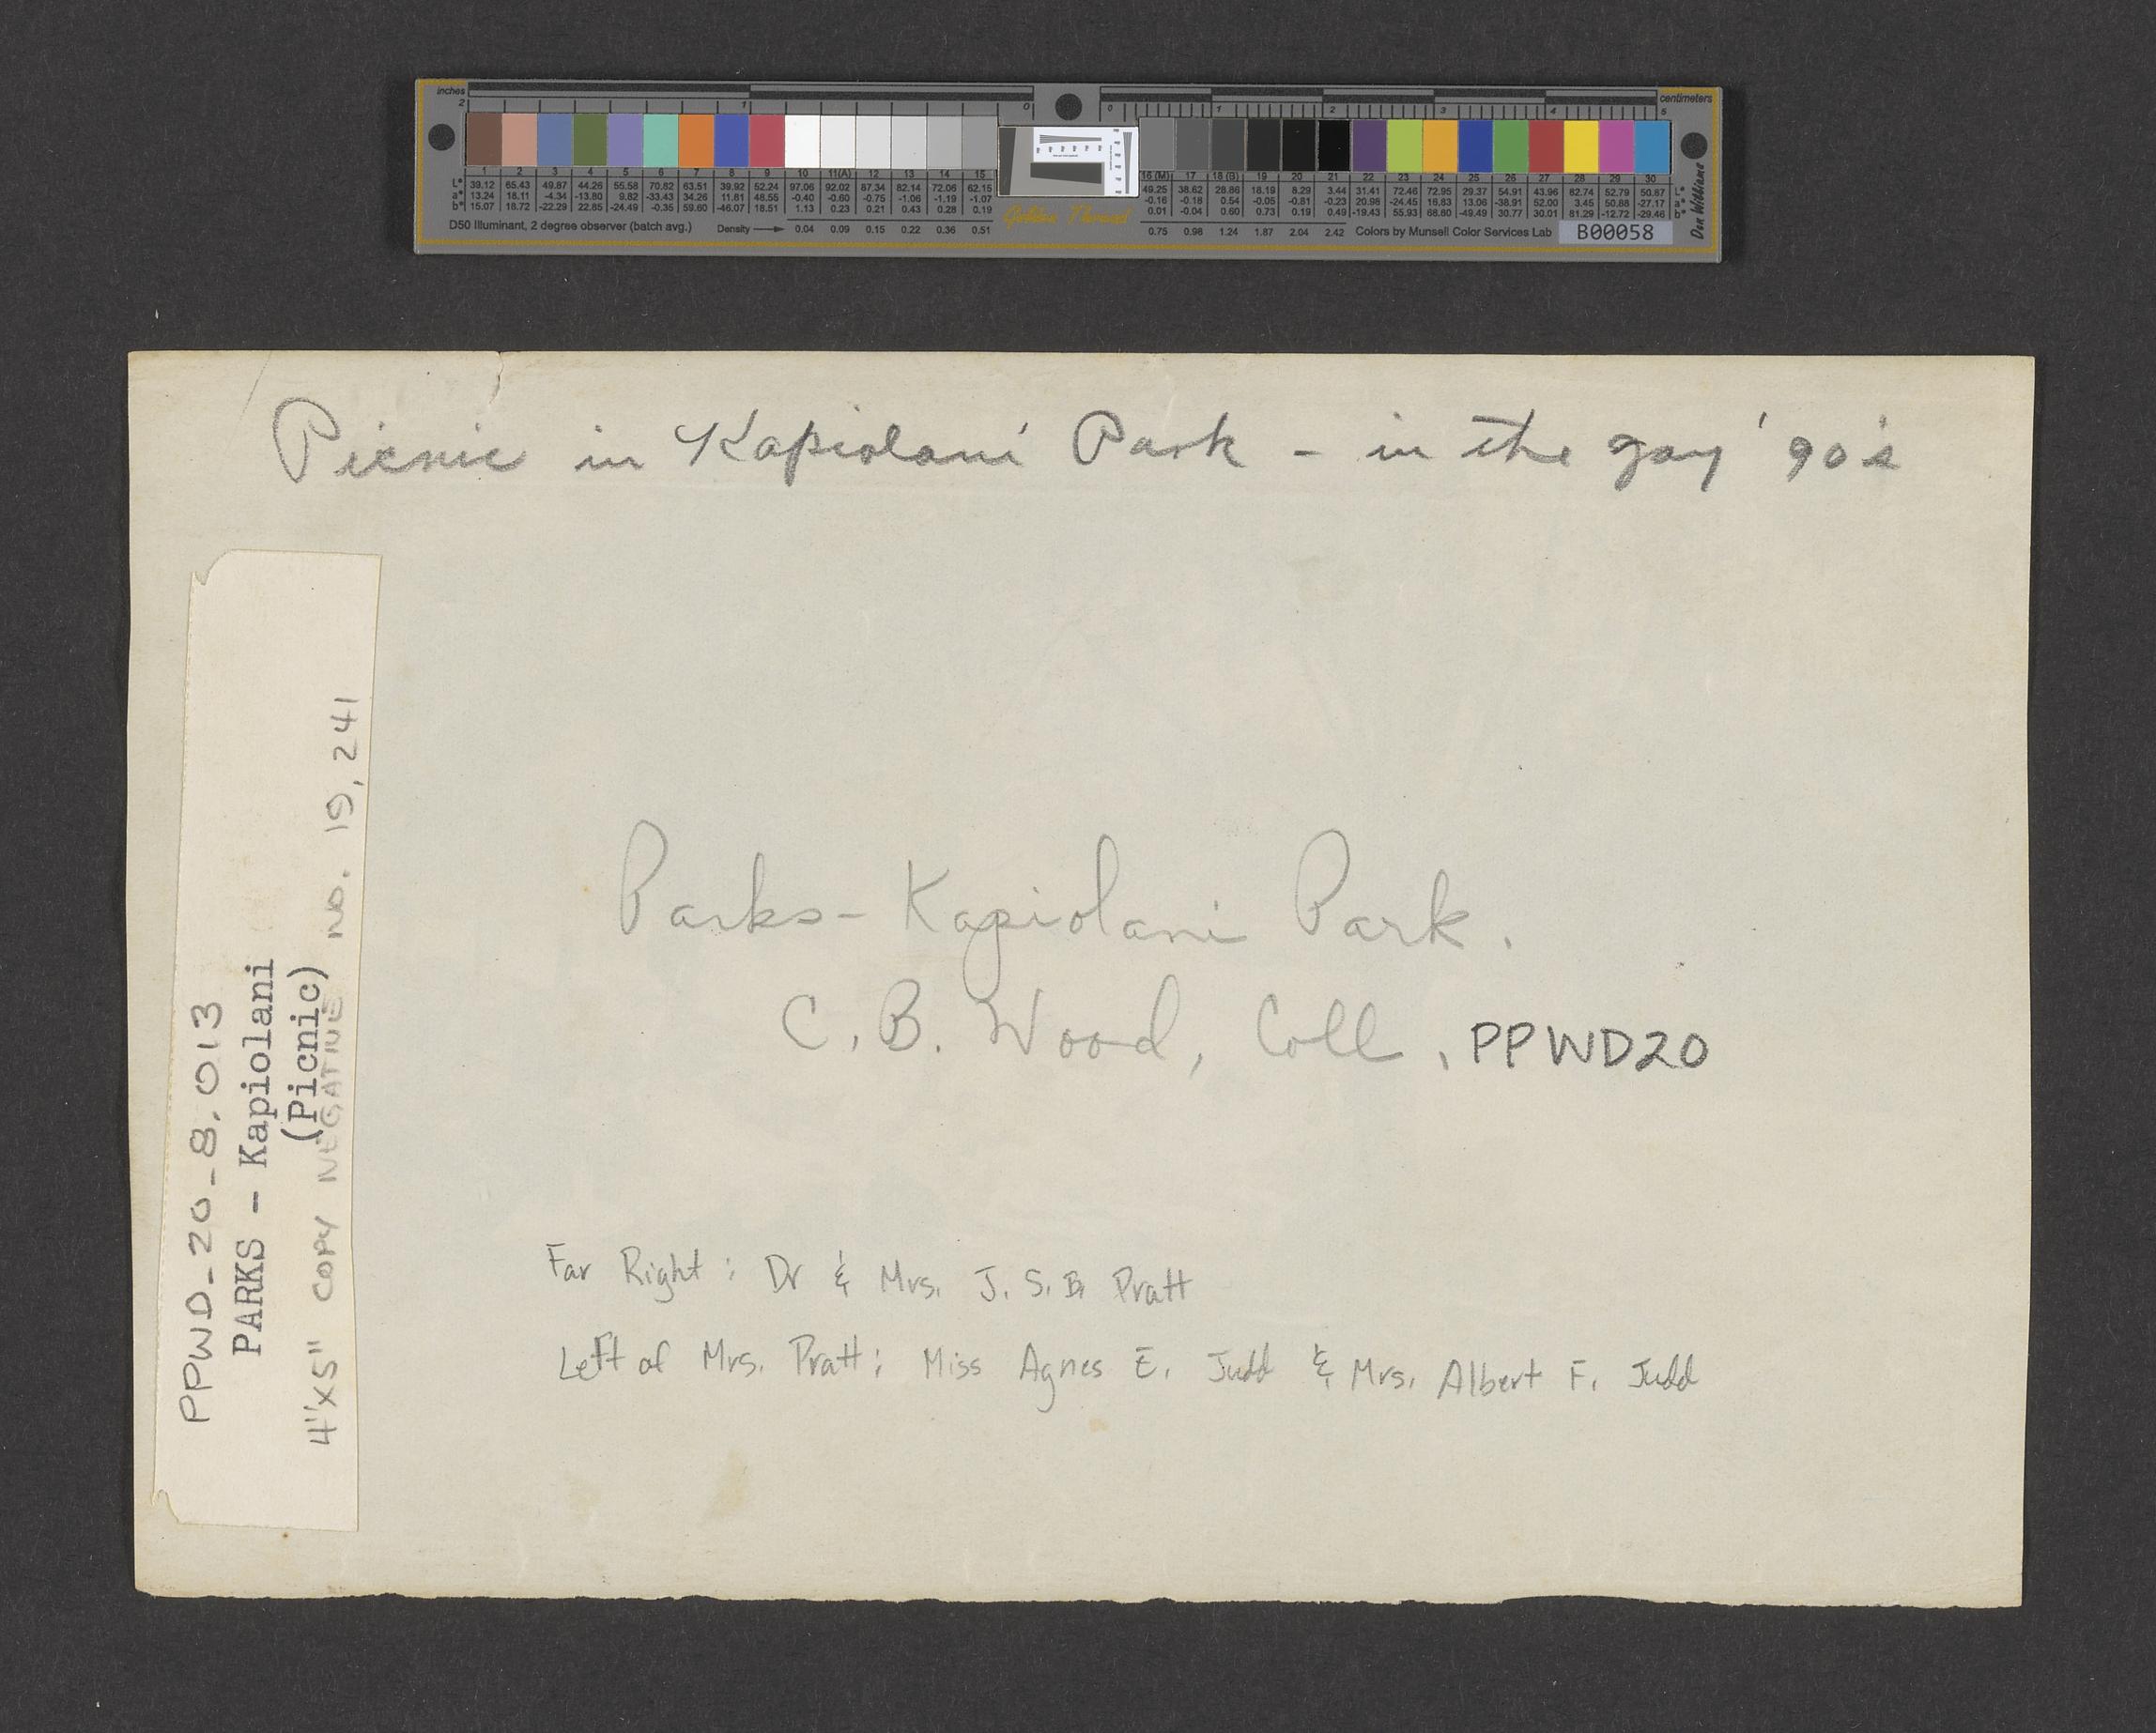 inches
centimeters
2 1 0 0 1 2 3 4 5
1 2 3 4 5 6 7 8 9 10 11(A) 12 13 14 15 16 (M) 17 18 (B) 19 20 21 22 23 24 25 26 27 28 29 30
L* 39.12 65.43 49.87 44.26 55.58 70.82 63.51 39.92 52.24 97.06 92.02 87.34 82.14 72.06 62.15 49.25 38.62 28.86 18.19 8.29 3.44 31.41 72.46 72.95 29.37 54.91 43.96 82.74 52.79 50.87 L*
a* 13.24 18.11 -4.34 -13.80 9.82 -33.43 34.26 11.81 48.55 -0.40 -0.60 -0.75 -1.06 -1.19 -1.07 -0.16 -0.18 0.54 -0.05 -0.81 -0.23 20.98 -24.45 16.83 13.06 -38.91 52.00 3.45 50.88 -27.17 a*
b* 15.07 18.72 -22.29 22.85 -24.49 -0.35 59.60 -46.07 18.51 1.13 0.23 0.21 0.43 0.28 0.19 0.01 -0.04 0.60 0.73 0.19 0.49 -19.43 55.93 68.80 -49.49 30.77 30.01 81.29 -12.72 -29.46 b*
D50 Illuminant, 2 degree observer (batch avg.) Density 0.04 0.09 0.15 0.22 0.36 0.51 Golden Thread 0.75 0.98 1.24 1.67 2.04 2.42 Colors by Munsell Color Services Lab B00058
Don Williams
Picnic in Kapiolani Park - in the gay '90's
PPWD_20_8.013
PARKS - Kapiolani
(Picnic)
4"x5" COPY NEGATIVE NO. 19,241
Parks - Kapiolani Park.
C. B. Wood, Coll. PPWD20
Far Right: Dr & Mrs. J. S. B. Pratt
Left of Mrs. Pratt: Miss Agnes E. Judd & Mrs. Albert F. Judd